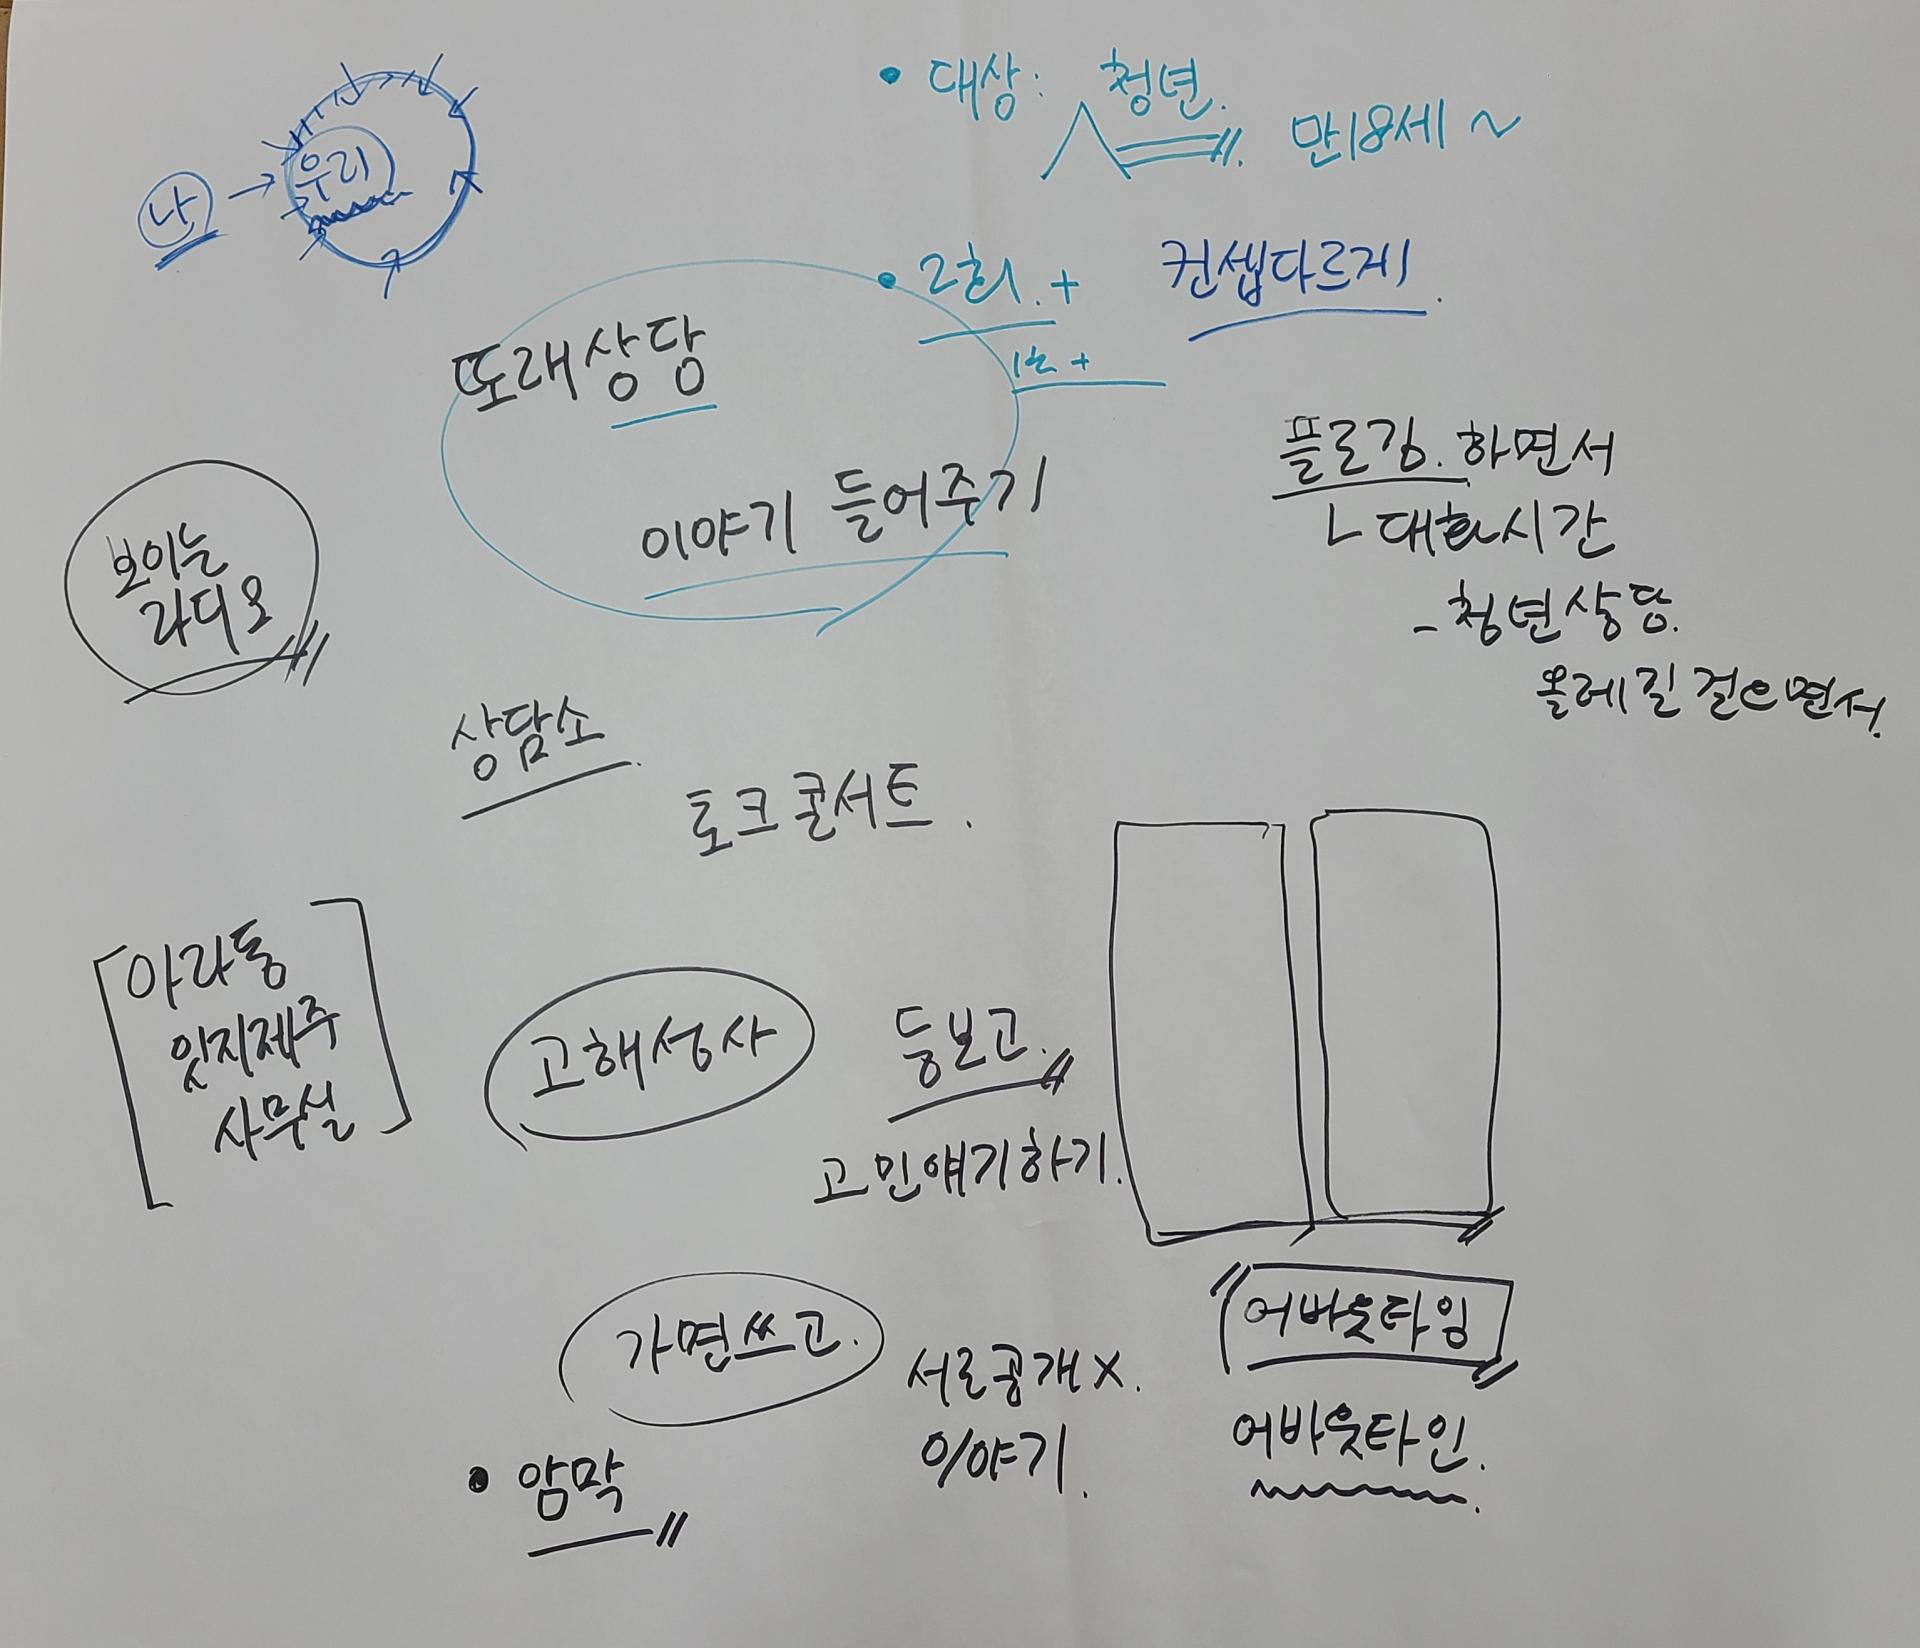 나 → 우리
• 대상: 청년.
만18세 ~
• 2회. +
컨셉다르게
또래상담
이야기 들어주기
플로깅. 하면서
ㄴ 대화시간
- 청년상담
올레길 걸으면서.
보이는
라디오
상담소
토크콘서트.
아라동
잇지제주
사무실
고해성사
등보고.
고민얘기하기.
가면쓰고.
서로공개 X.
이야기.
어바웃타임
어바웃타인.
• 암막